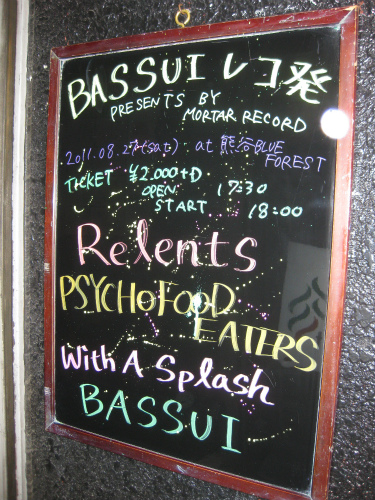 BASSUI レコ発
PRESENTS BY
MORTAR RECORD
2011.08.27(sat) at 熊谷BLUE
FOREST
TICKET ¥2.000+D
OPEN 17:30
START 18:00
Relents
PSYCHOFOOD
EATERS
With A Splash
BASSUI